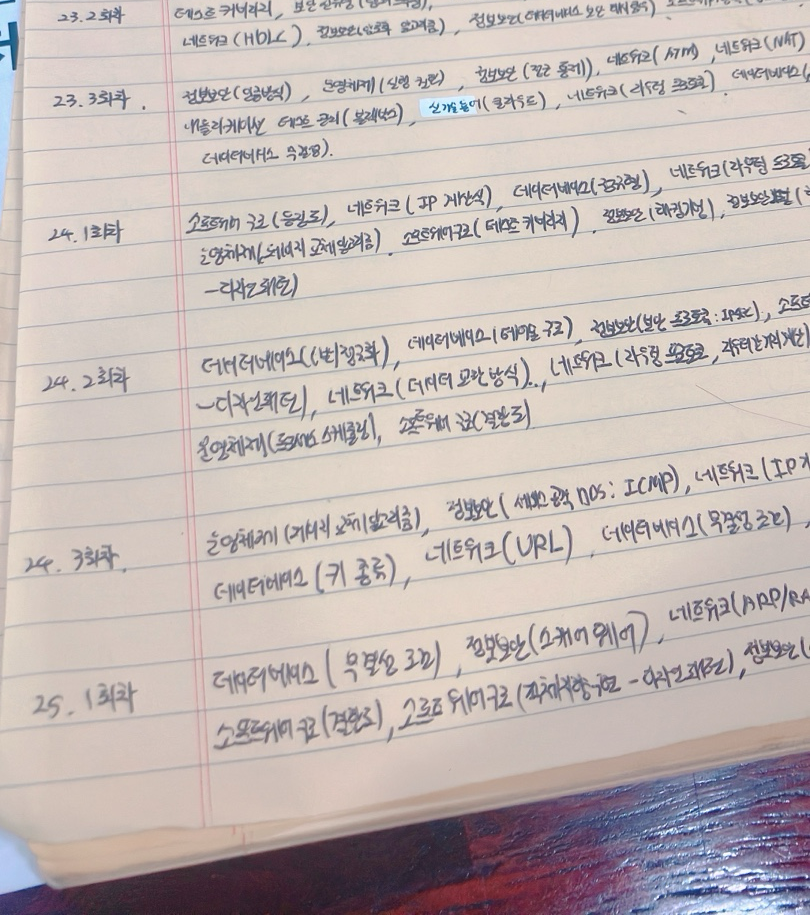 23.2회차 테스트 커버리지,
네트워크(HDLC), 정보보안(암호화 알고리즘), 정보보안(데이터베이스 보안
23.3회차. 정보보안(인증방식), 운영체제( , 정보보안(접근 통제), 네트워크(ATM), 네트워크(NAT)
애플리케이션 테스트 관리(블랙박스), 신기술용어(클라우드), 네트워크(라우팅 프로토콜), 데이터베이스
데이터베이스 무결성).
24.1회차 소프트웨어 구조(응집도), 네트워크(IP 계산식), 데이터베이스( , 네트워크(라우팅 프로토콜
운영체제(페이지 교체 알고리즘), 소프트웨어 구조(테스트 커버리지), 정보보안(해킹기법),
-디자인패턴)
24.2회차 데이터베이스(반정규화), 데이터베이스(테이블 구조), 정보보안(보안 프로토콜: IPSec), 소프트
-디자인패턴), 네트워크(데이터 교환 방식), 네트워크(라우팅 프로토콜,
운영체제(프로세스 스케줄링), 소프트웨어 구조(결합도)
24. 3회차. 운영체제(페이지 교체 알고리즘), 정보보안( 공격 DOS: ICMP), 네트워크(IP
데이터베이스(키 종류), 네트워크(URL), 데이터베이스(무결성 조건),
25. 1회차 데이터베이스(무결성 조건), 정보보안(스케어웨어), 네트워크(ARP/RA
소프트웨어 구조(결합도), 소프트웨어 구조( - 디자인패턴), 정보보안(